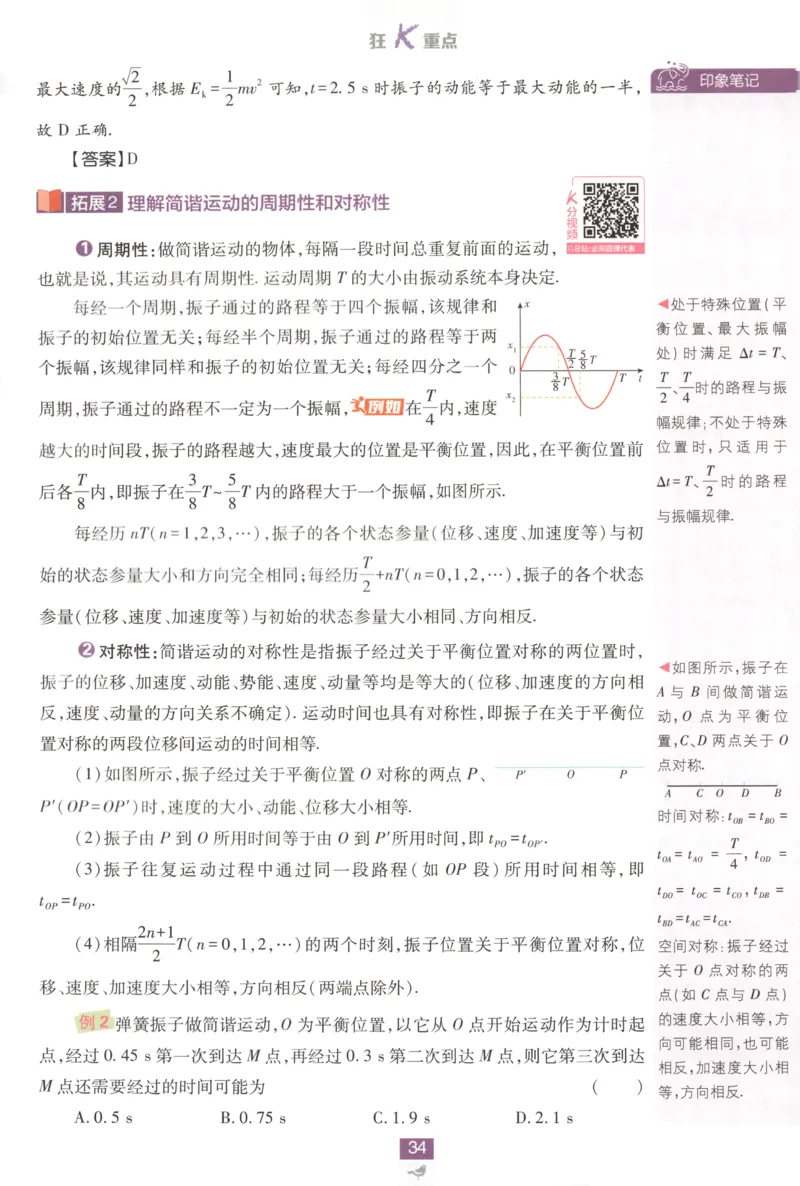 狂K重点
印象笔记
最大速度的√2/2,根据 Eₖ=1/2mv²可知,t=2.5 s时振子的动能等于最大动能的一半,
故 D 正确.
【答案】D
拓展2 理解简谐运动的周期性和对称性
K分视频
B站:必刷题课代表
❶ 周期性:做简谐运动的物体,每隔一段时间总重复前面的运动,
也就是说,其运动具有周期性.运动周期 T 的大小由振动系统本身决定.
每经一个周期,振子通过的路程等于四个振幅,该规律和
振子的初始位置无关;每经半个周期,振子通过的路程等于两
个振幅,该规律同样和振子的初始位置无关;每经四分之一个
周期,振子通过的路程不一定为一个振幅,例如在T/4内,速度
x
x₁
0
x₂
T/2
5/8T
3/8T
T
t
越大的时间段,振子的路程越大,速度最大的位置是平衡位置,因此,在平衡位置前
后各T/8内,即振子在3/8T~5/8T内的路程大于一个振幅,如图所示.
每经历 nT(n=1,2,3,…),振子的各个状态参量(位移、速度、加速度等)与初
始的状态参量大小和方向完全相同;每经历T/2+nT(n=0,1,2,…),振子的各个状态
参量(位移、速度、加速度等)与初始的状态参量大小相同、方向相反.
❷ 对称性:简谐运动的对称性是指振子经过关于平衡位置对称的两位置时,
振子的位移、加速度、动能、势能、速度、动量等均是等大的(位移、加速度的方向相
反,速度、动量的方向关系不确定).运动时间也具有对称性,即振子在关于平衡位
置对称的两段位移间运动的时间相等.
(1)如图所示,振子经过关于平衡位置 O 对称的两点 P、
P′ O P
P′(OP=OP′)时,速度的大小、动能、位移大小相等.
(2)振子由 P 到 O 所用时间等于由 O 到 P′所用时间,即 t_PO=t_OP′.
(3)振子往复运动过程中通过同一段路程(如 OP 段)所用时间相等,即
t_OP=t_PO.
(4)相隔(2n+1)/2 T(n=0,1,2,…)的两个时刻,振子位置关于平衡位置对称,位
移、速度、加速度大小相等,方向相反(两端点除外).
例2 弹簧振子做简谐运动,O 为平衡位置,以它从 O 点开始运动作为计时起
点,经过0.45 s第一次到达 M 点,再经过0.3 s第二次到达 M 点,则它第三次到达
M 点还需要经过的时间可能为 ( )
A.0.5 s B.0.75 s C.1.9 s D.2.1 s
◀处于特殊位置(平
衡位置、最大振幅
处)时满足 Δt=T、
T/2、T/4时的路程与振
幅规律;不处于特殊
位置时,只适用于
Δt=T、T/2时的路程
与振幅规律.
◀如图所示,振子在
A 与 B 间做简谐运
动,O 点为平衡位
置,C、D 两点关于 O
点对称.
A C O D B
时间对称:t_OB=t_BO=
t_OA=t_AO=T/4,t_OD=
t_DO=t_OC=t_CO,t_DB=
t_BD=t_AC=t_CA.
空间对称:振子经过
关于 O 点对称的两
点(如 C 点与 D 点)
的速度大小相等,方
向可能相同,也可能
相反,加速度大小相
等,方向相反.
34